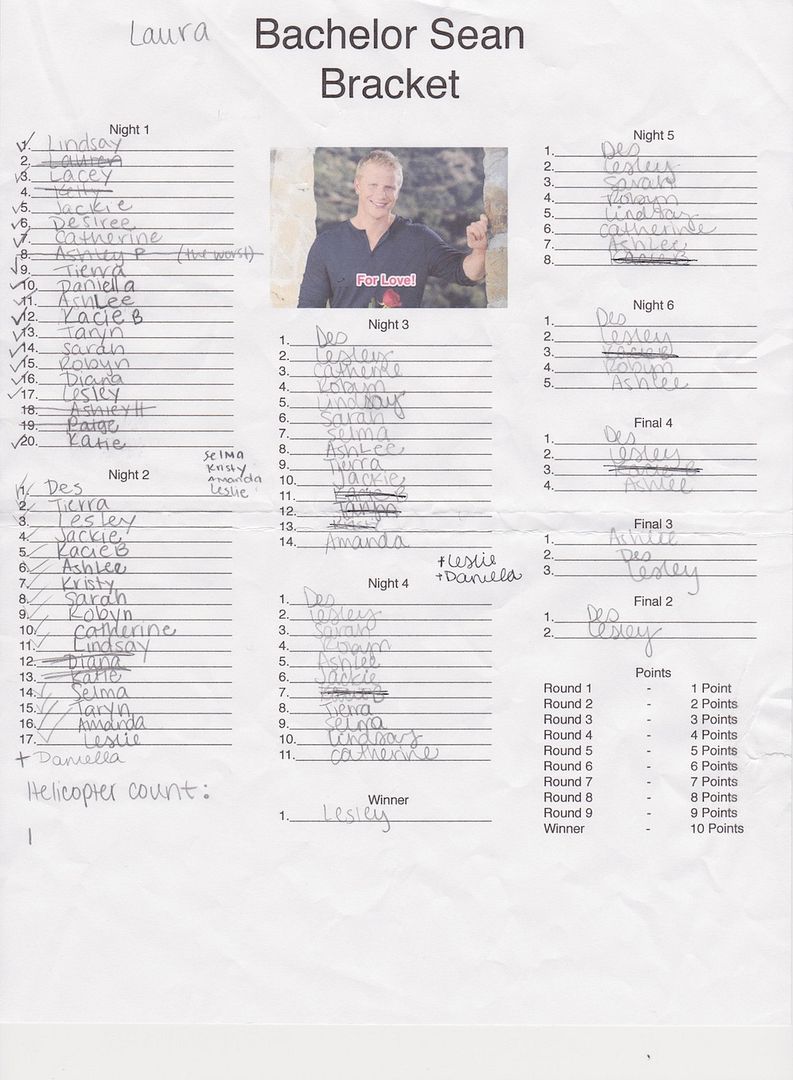 Laura
Bachelor Sean
Bracket
Night 1
1. Lindsay
2. Lauren
3. Lacey
4. Kelly
5. Jackie
6. Desiree
7. Catherine
8. Ashley P (the worst)
9. Tierra
10. Daniella
11. AshLee
12. Kacie B
13. Taryn
14. Sarah
15. Robyn
16. Diana
17. Lesley
18. Ashley H
19. Paige
20. Katie
Selma
Kristy
Amanda
Leslie
Night 2
1. Des
2. Tierra
3. Lesley
4. Jackie
5. Kacie B
6. AshLee
7. Kristy
8. Sarah
9. Robyn
10. Catherine
11. Lindsay
12. Diana
13. Katie
14. Selma
15. Taryn
16. Amanda
17. Leslie
+ Daniella
Helicopter count:
1
For Love!
Night 3
1. Des
2. Lesley
3. Catherine
4. Robyn
5. Lindsay
6. Sarah
7. Selma
8. AshLee
9. Tierra
10. Jackie
11. Kacie B
12. Taryn
13. Kristy
14. Amanda
+ Leslie
+ Daniella
Night 4
1. Des
2. Lesley
3. Sarah
4. Robyn
5. Ashlee
6. Jackie
7. Kacie B
8. Tierra
9. Selma
10. Lindsay
11. Catherine
Winner
1. Lesley
Night 5
1. Des
2. Lesley
3. Sarah
4. Robyn
5. Lindsay
6. Catherine
7. AshLee
8. Kacie B
Night 6
1. Des
2. Lesley
3. Kacie B
4. Robyn
5. Ashlee
Final 4
1. Des
2. Lesley
3. Kacie B
4. Ashlee
Final 3
1. Ashlee
2. Des
3. Lesley
Final 2
1. Des
2. Lesley
Points
Round 1 - 1 Point
Round 2 - 2 Points
Round 3 - 3 Points
Round 4 - 4 Points
Round 5 - 5 Points
Round 6 - 6 Points
Round 7 - 7 Points
Round 8 - 8 Points
Round 9 - 9 Points
Winner - 10 Points